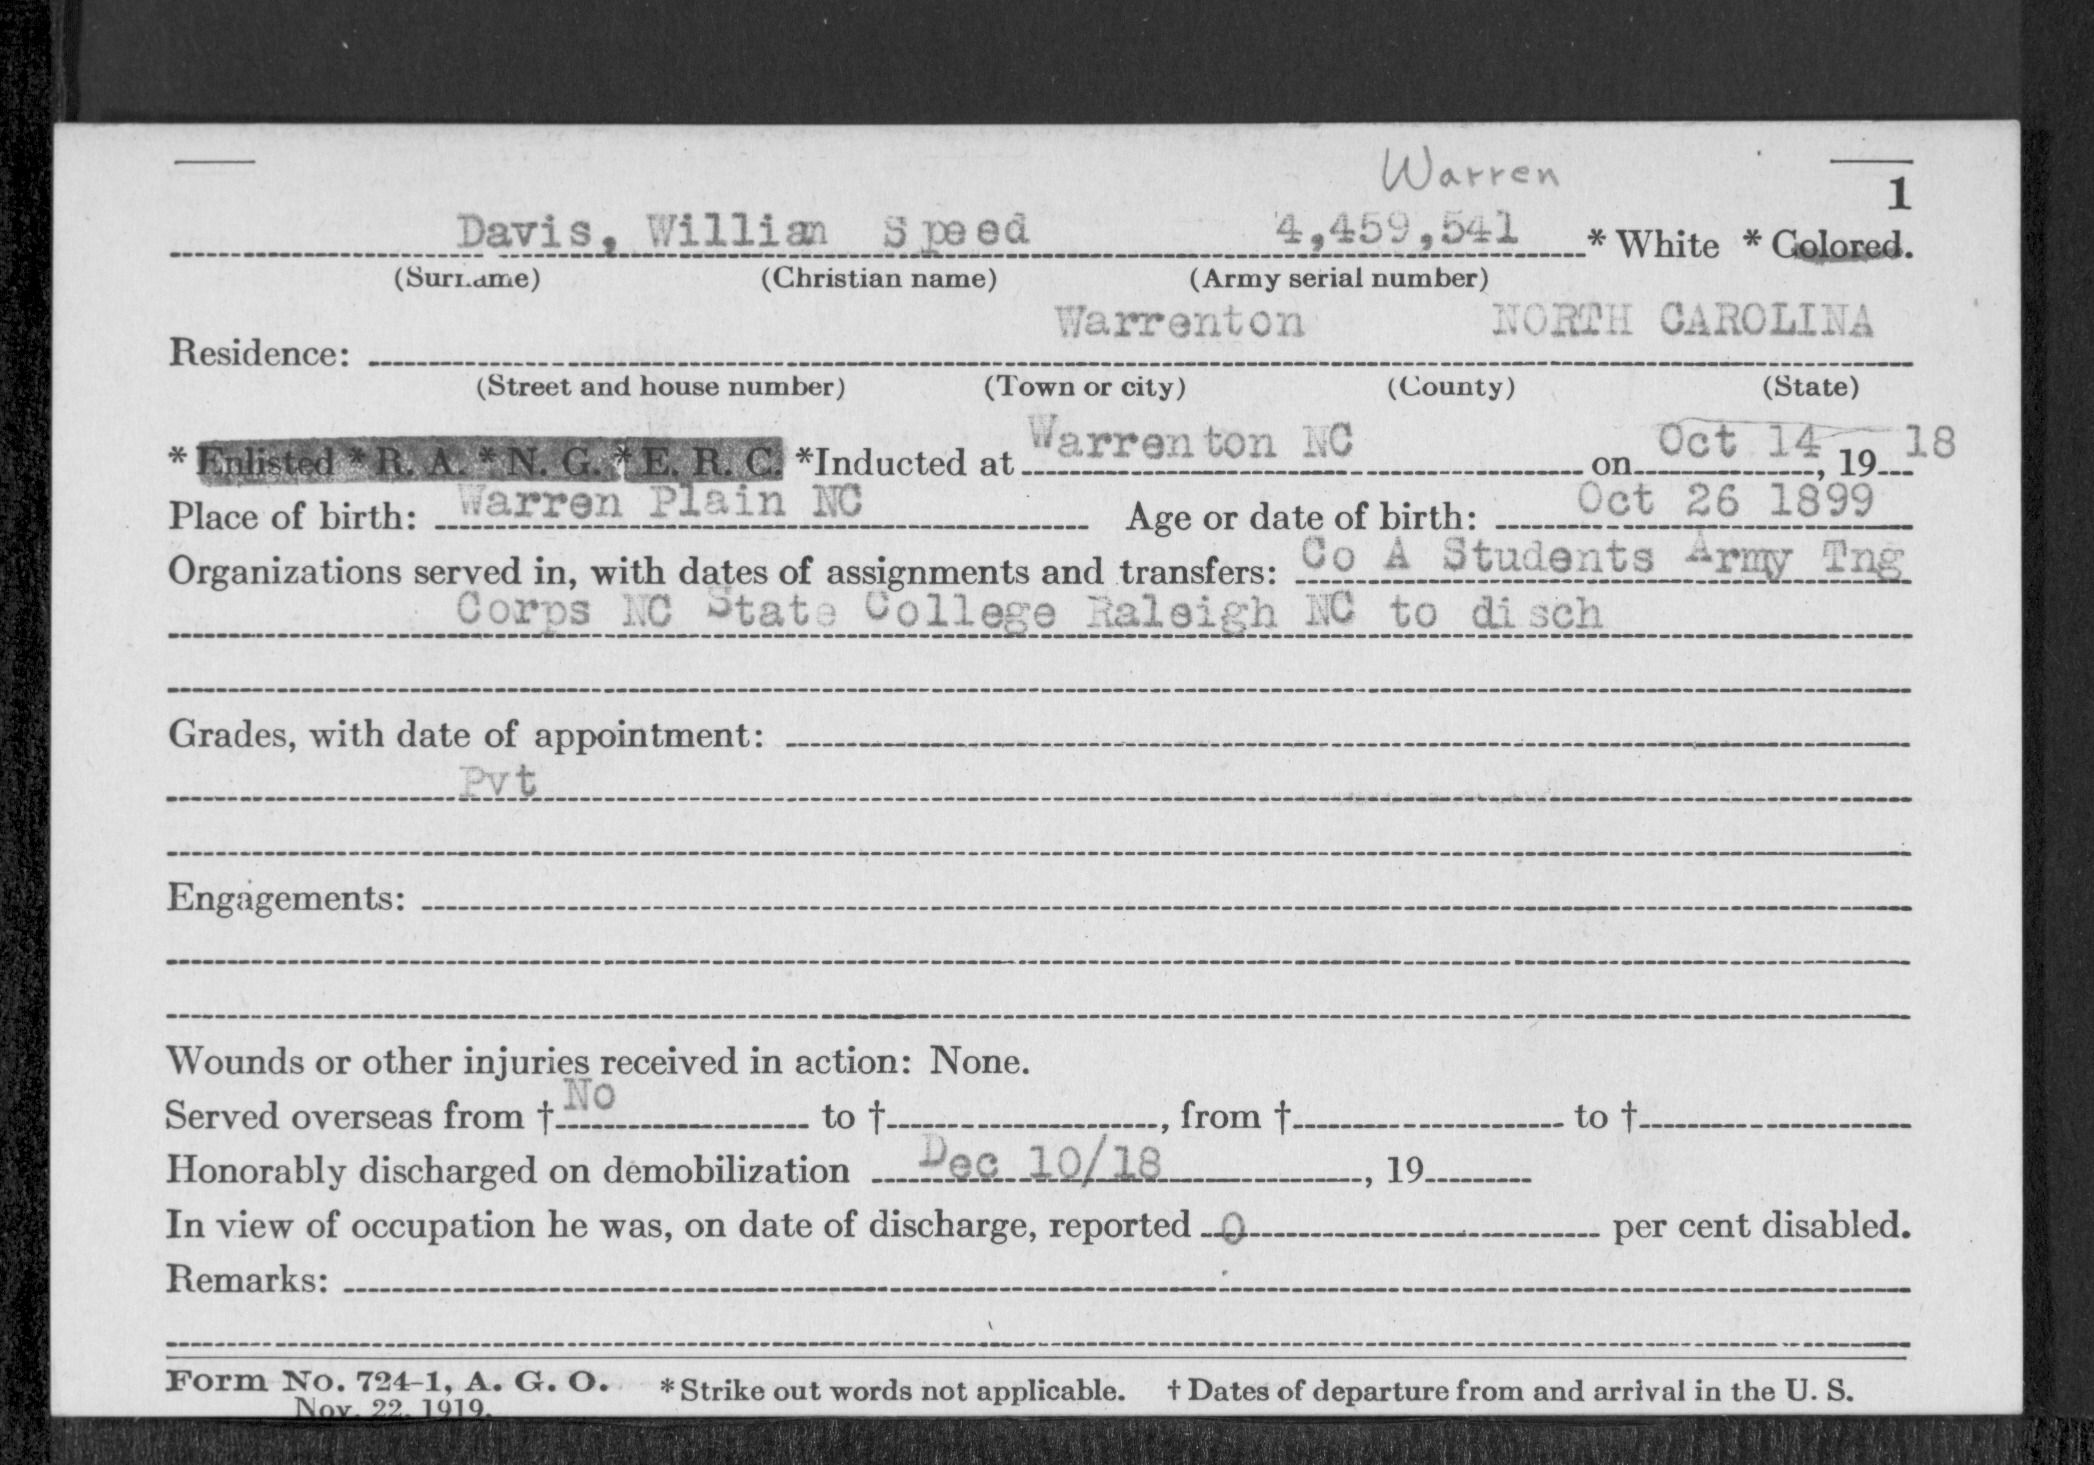 Warren
1
Davis, Willian Speed 4,459,541 * White * Colored.
(Surname) (Christian name) (Army serial number)
Warrenton NORTH CAROLINA
Residence:
(Street and house number) (Town or city) (County) (State)
* Enlisted * R. A. * N. G. * E. R. C. *Inducted at Warrenton NC on Oct 14, 19 18
Place of birth: Warren Plain NC Age or date of birth: Oct 26 1899
Organizations served in, with dates of assignments and transfers: Co A Students Army Tng
Corps NC State College Raleigh NC to disch
Grades, with date of appointment:
Pvt
Engagements:
Wounds or other injuries received in action: None.
Served overseas from † No to †, from † to †
Honorably discharged on demobilization Dec 10/18, 19
In view of occupation he was, on date of discharge, reported 0 per cent disabled.
Remarks:
Form No. 724-1, A. G. O. * Strike out words not applicable. † Dates of departure from and arrival in the U. S.
Nov. 22, 1919.